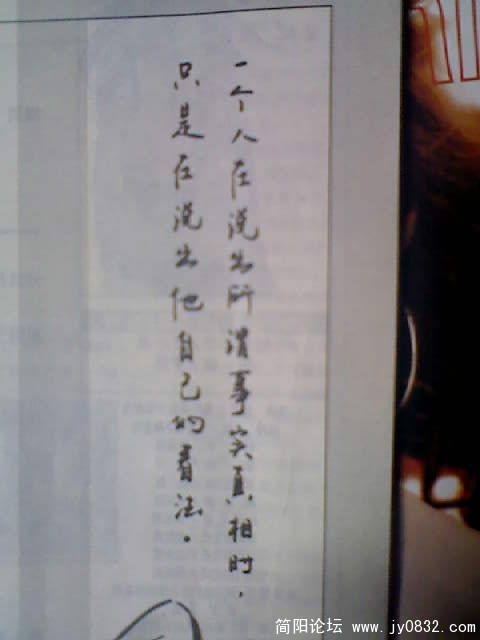 一个人在说出所谓事实真相时，
只是在说出他自己的看法。
简阳论坛 www.jy0832.com